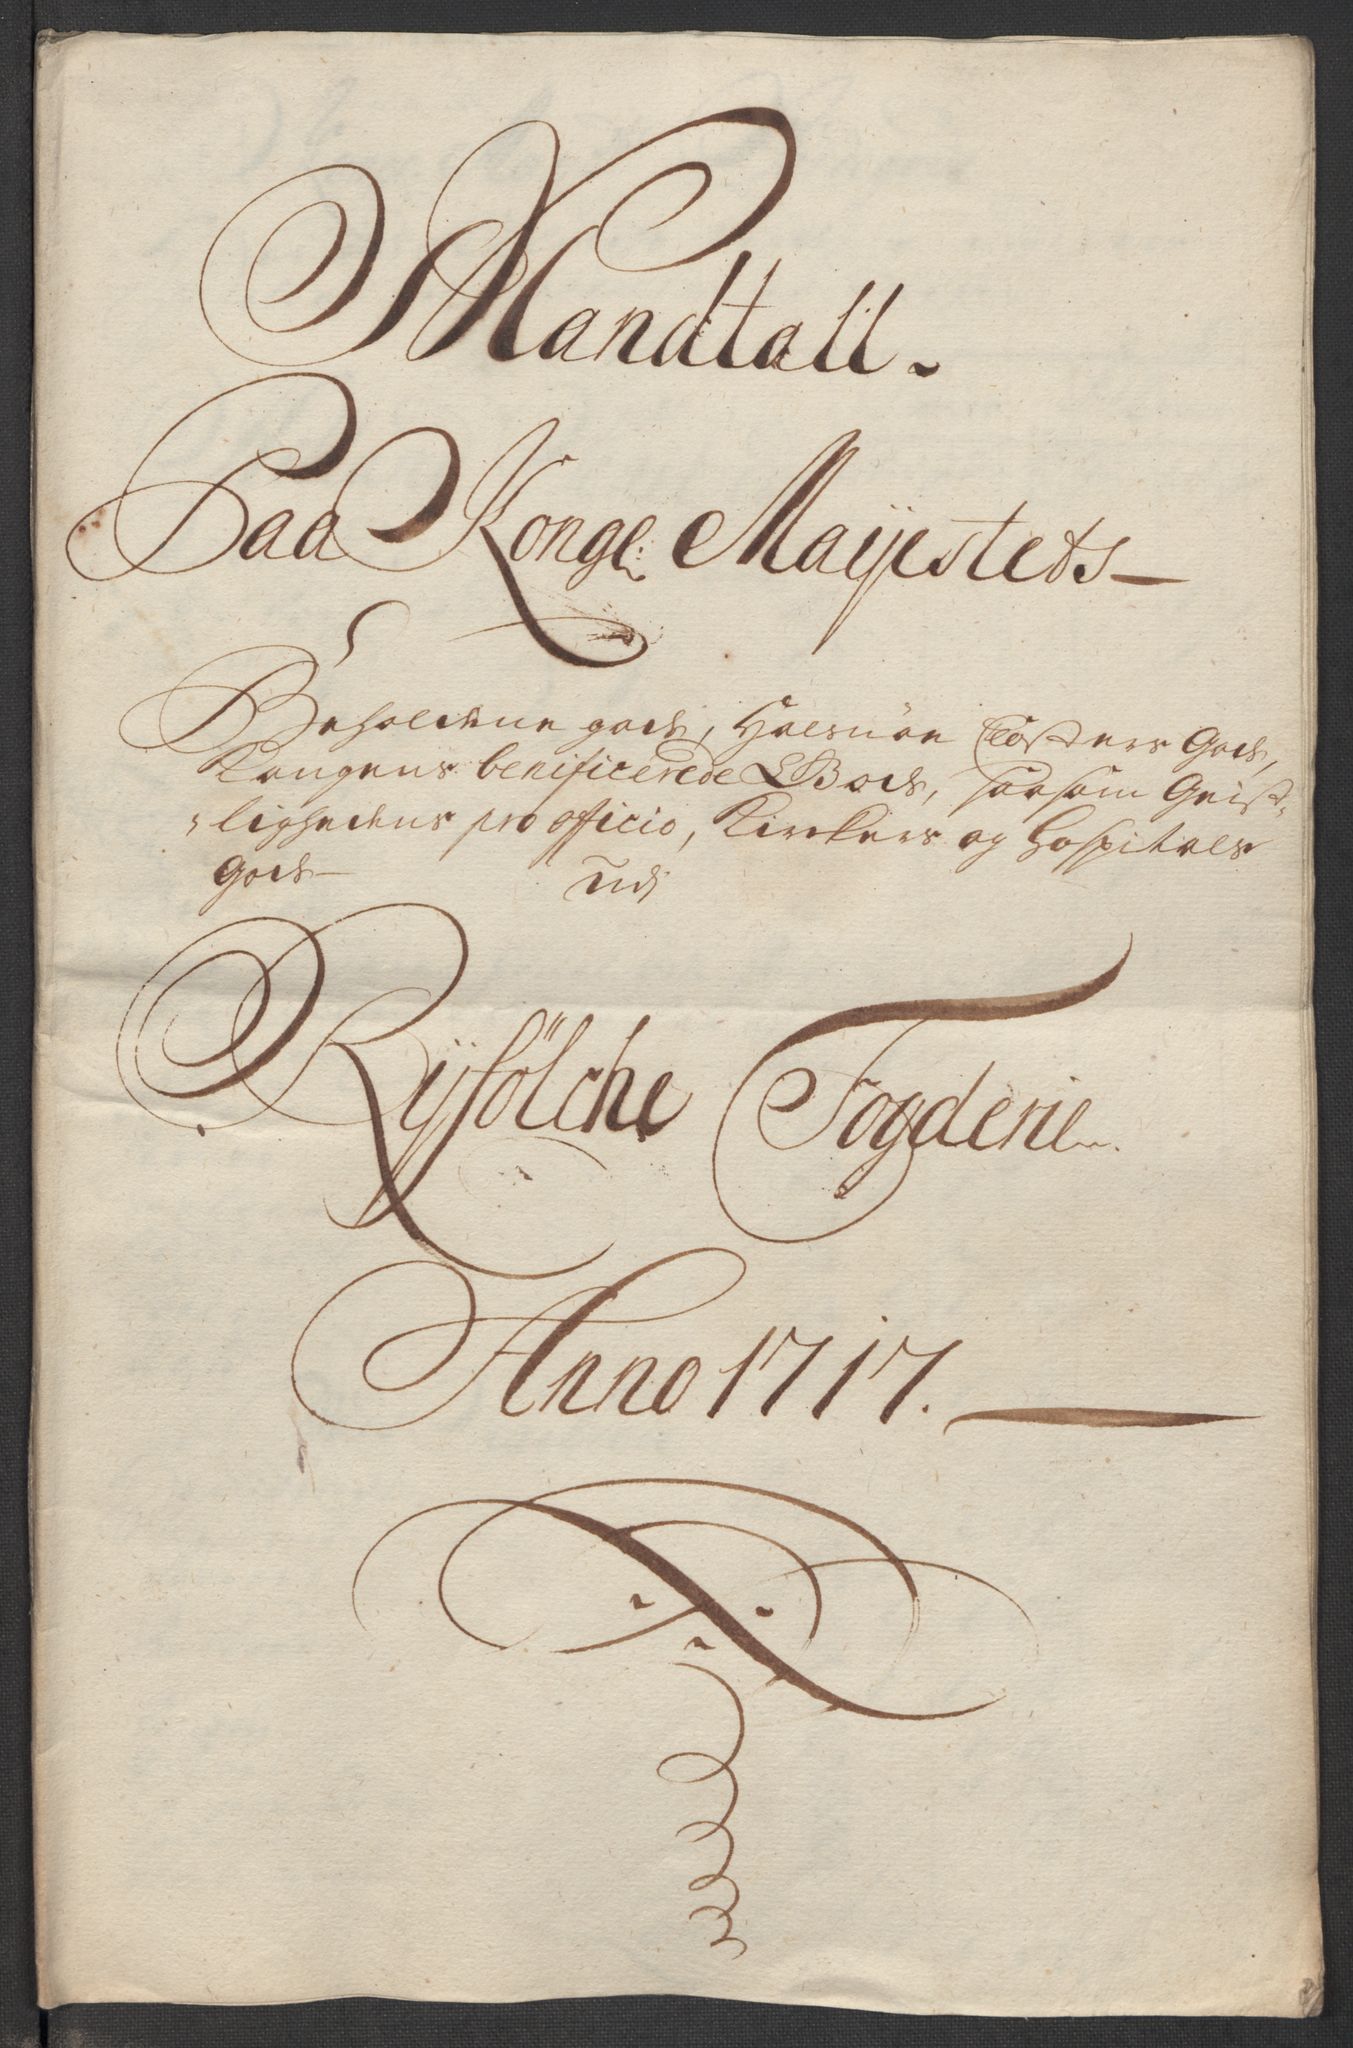 Mandtall.
Paa Kongl: Maÿestets
Beholdene gods, Halsnöe Closters Gods,
Kongens benificerede Gods, saasom Geist-
lighedens pro officio, Kirkers og Hospitals
Gods
Udj
Rÿfölche Fogderie
Anno 1717.